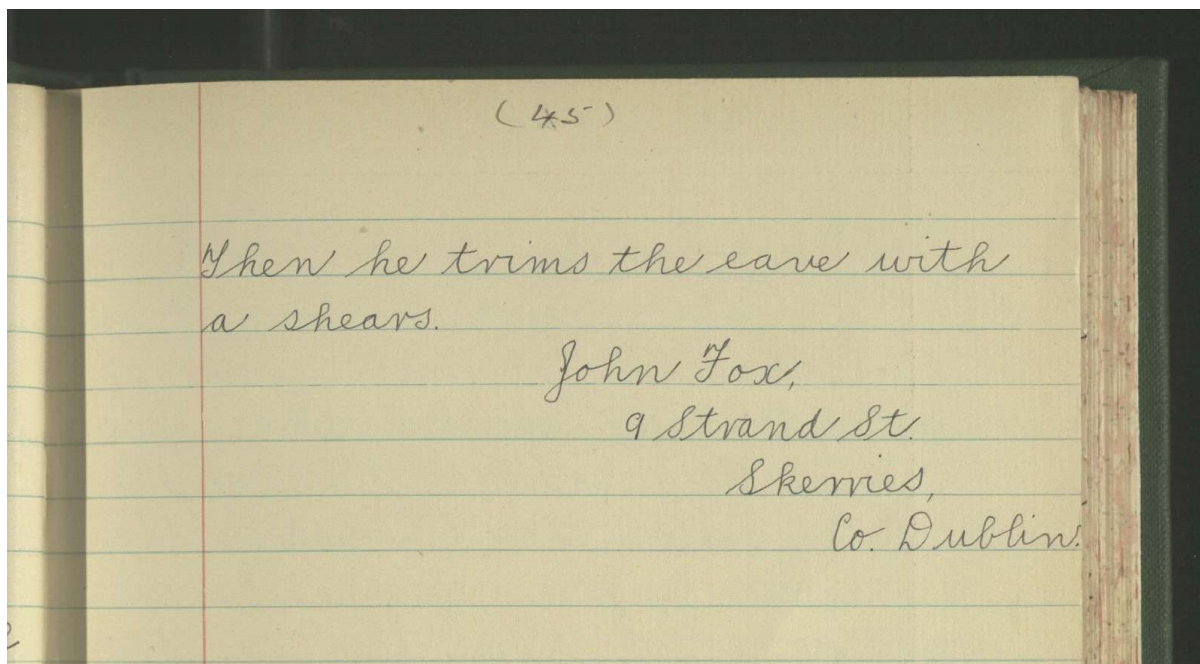 (45)
Then he trims the eave with
a shears.
John Fox,
9 Strand St.
Skerries,
Co. Dublin.